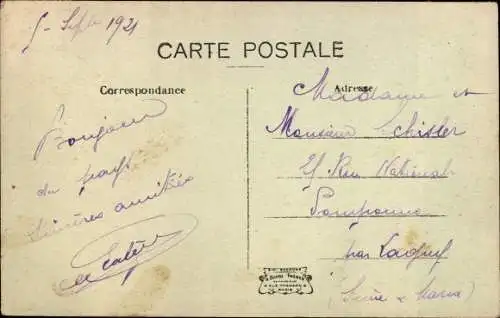 5 - Sept 1921
CARTE POSTALE
Correspondance
Adresse
Bonjour
du pays
Sincères amitiés
Madame et
Monsieur Schisler
Rue National
Pomponne
par Lagny
(Seine & Marne)